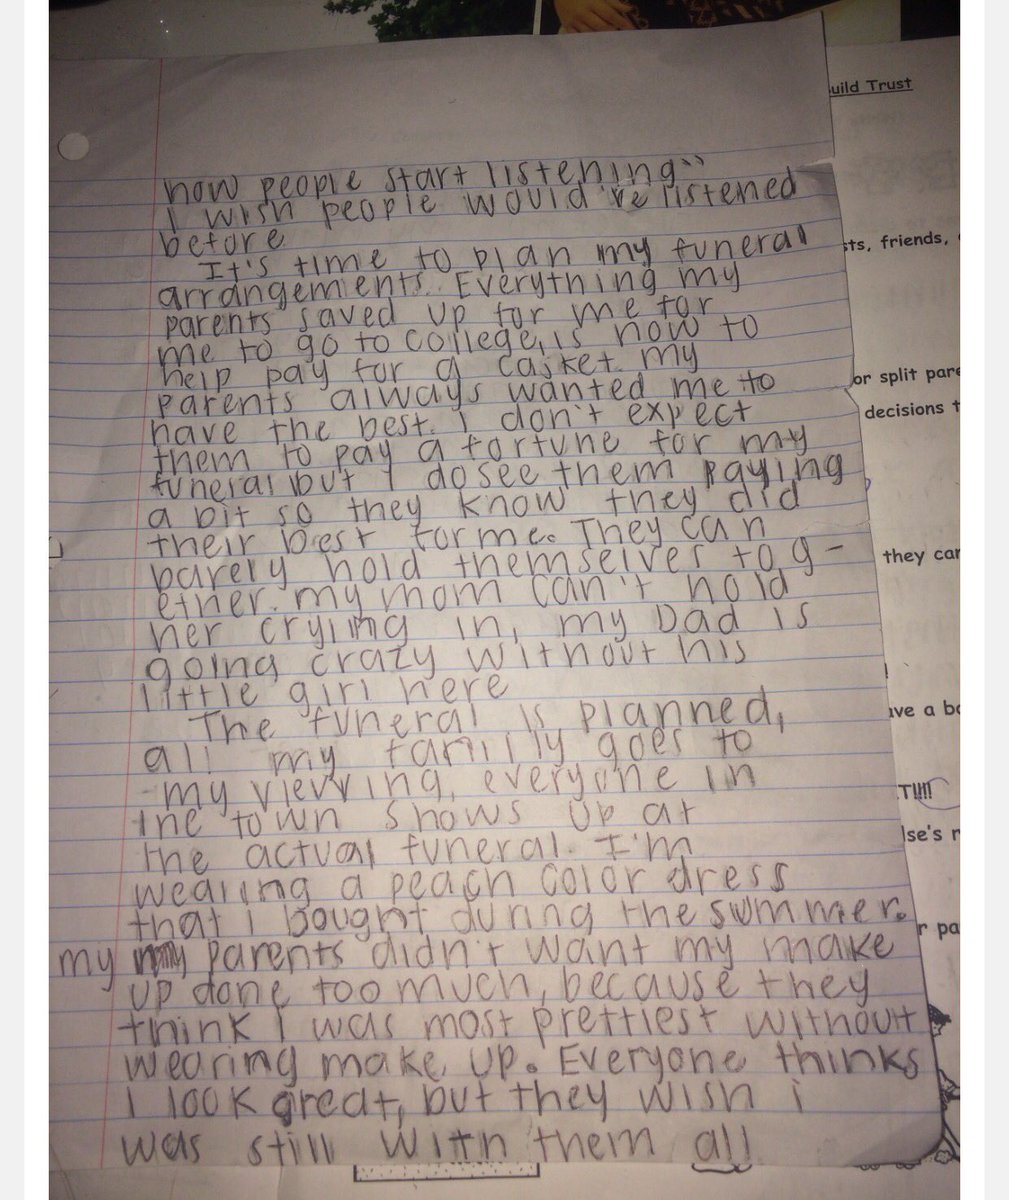 uild Trust
now people start listening"
I wish people would've listened
before
It's time to plan my funeral
sts, friends,
arrangements. Everything my
parents saved up for me for
me to go to college, is now to
help pay for a casket. my
or split pare
parents always wanted me to
decisions t
have the best. I don't expect
them to pay a fortune for my
funeral but I do see them paying
a bit so they know they did
their best for me. They can
they car
barely hold themselves tog-
ether. my mom can't hold
her cryiing in, my Dad is
going crazy without his
little girl here
The funeral is planned,
ave a bo
all my familly goes to
my viewing, everyone in
T!!!!
the town shows up at
lse's r
the actual funeral. I'm
wearing a peach color dress
that I bought during the summer.
r pa
my parents didn't want my make
up done too much, because they
think I was most prettiest without
wearing make up. Everyone thinks
I look great, but they wish i
was still with them all